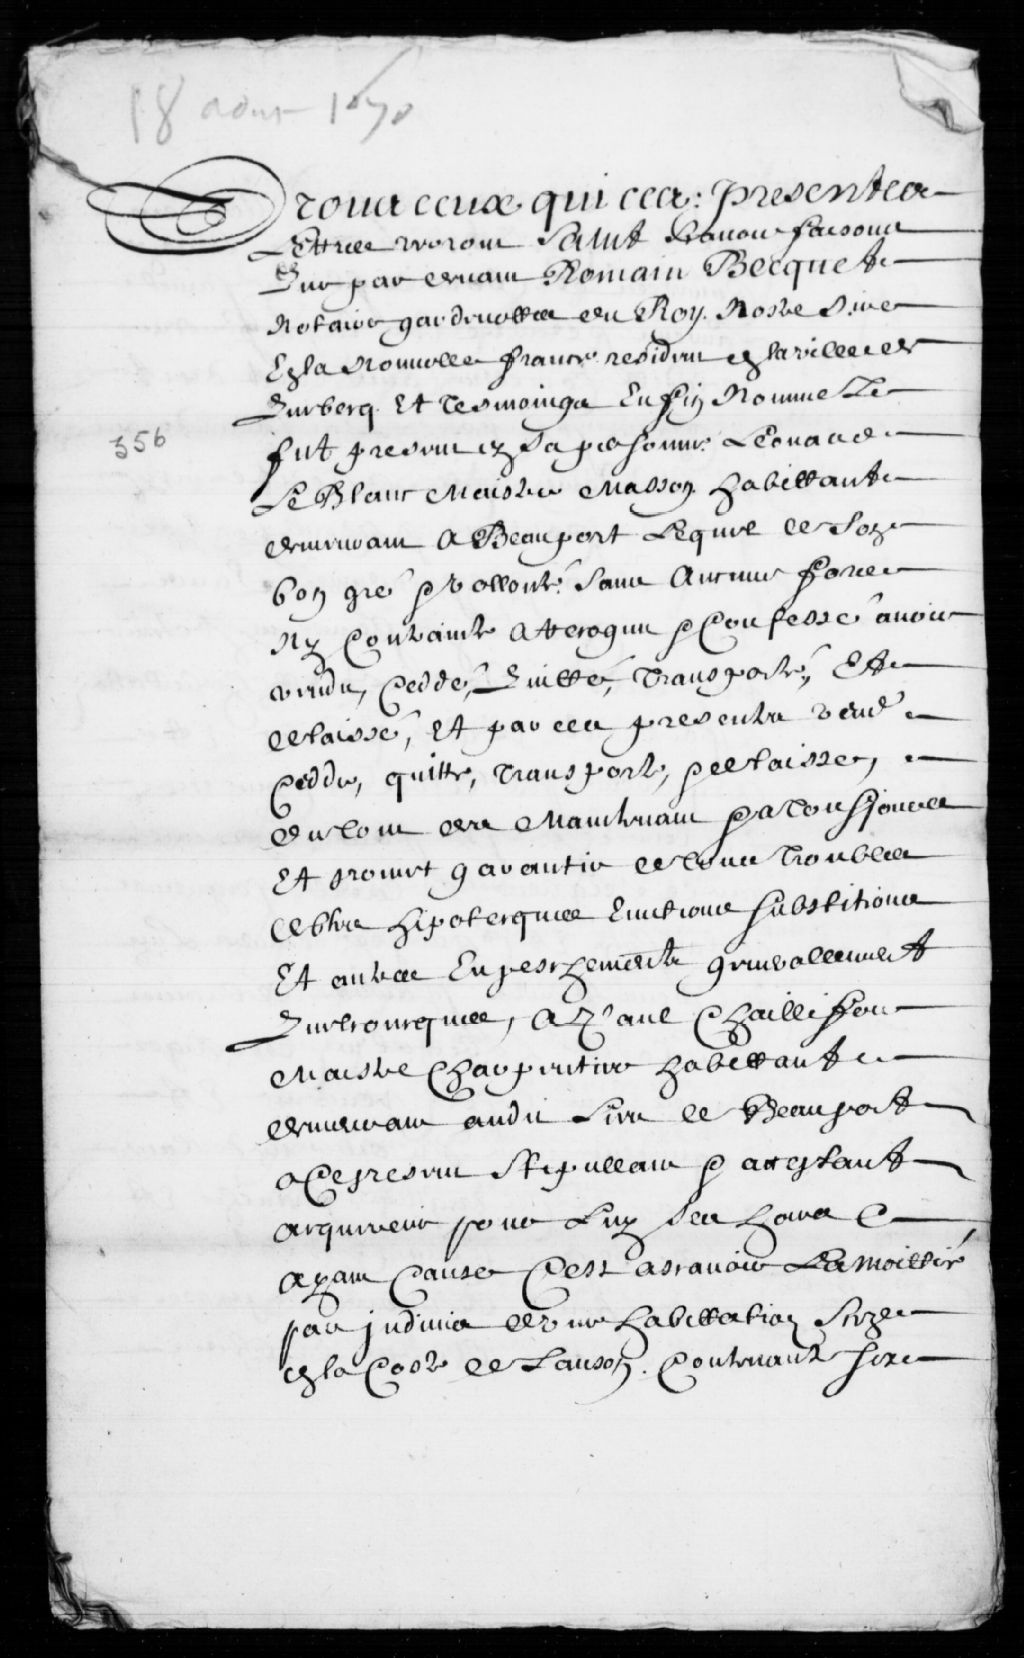 18 aout 1670
A tous ceux qui ces: presentes
Lettres verront Salut Scavoir faisons
Que par devant Romain Becquet
Notaire gardenottes du Roy Nostre Sire
En la Nouvelle france resident en la ville de
Quebecq Et tesmoings En fin Nommez
fut present en sa personne Leonard
Le Blanc Maistre Masson habittant
demeurant A Beauport Lequel de son
bon gré & vollonté sans Aucune force
Ny Contrainte A Recognu & Confessé avoir
vendu, Ceddé, Quitté, Transporté, Et
delaissé, Et par ces presentes vend
Cedde, quitte, Transporte, & delaisse,
du tout des Maintenant & a Tousjours
Et promet garantir de tous Troubles
debtes hipotecques Evictions substitions
Et autres Enpeschements generallement
Quelconques, A Paul Chalifou
Maistre Charpentier habittant
demeurant audit Lieu de Beauport
a Ce present Stipullant & acceptant
acquereur pour Luy Ses hoirs &
ayans Cause C'est ascavoir La moittié
par indivis d'une habittation Size
en la Coste de Lauson. Contenant six
356